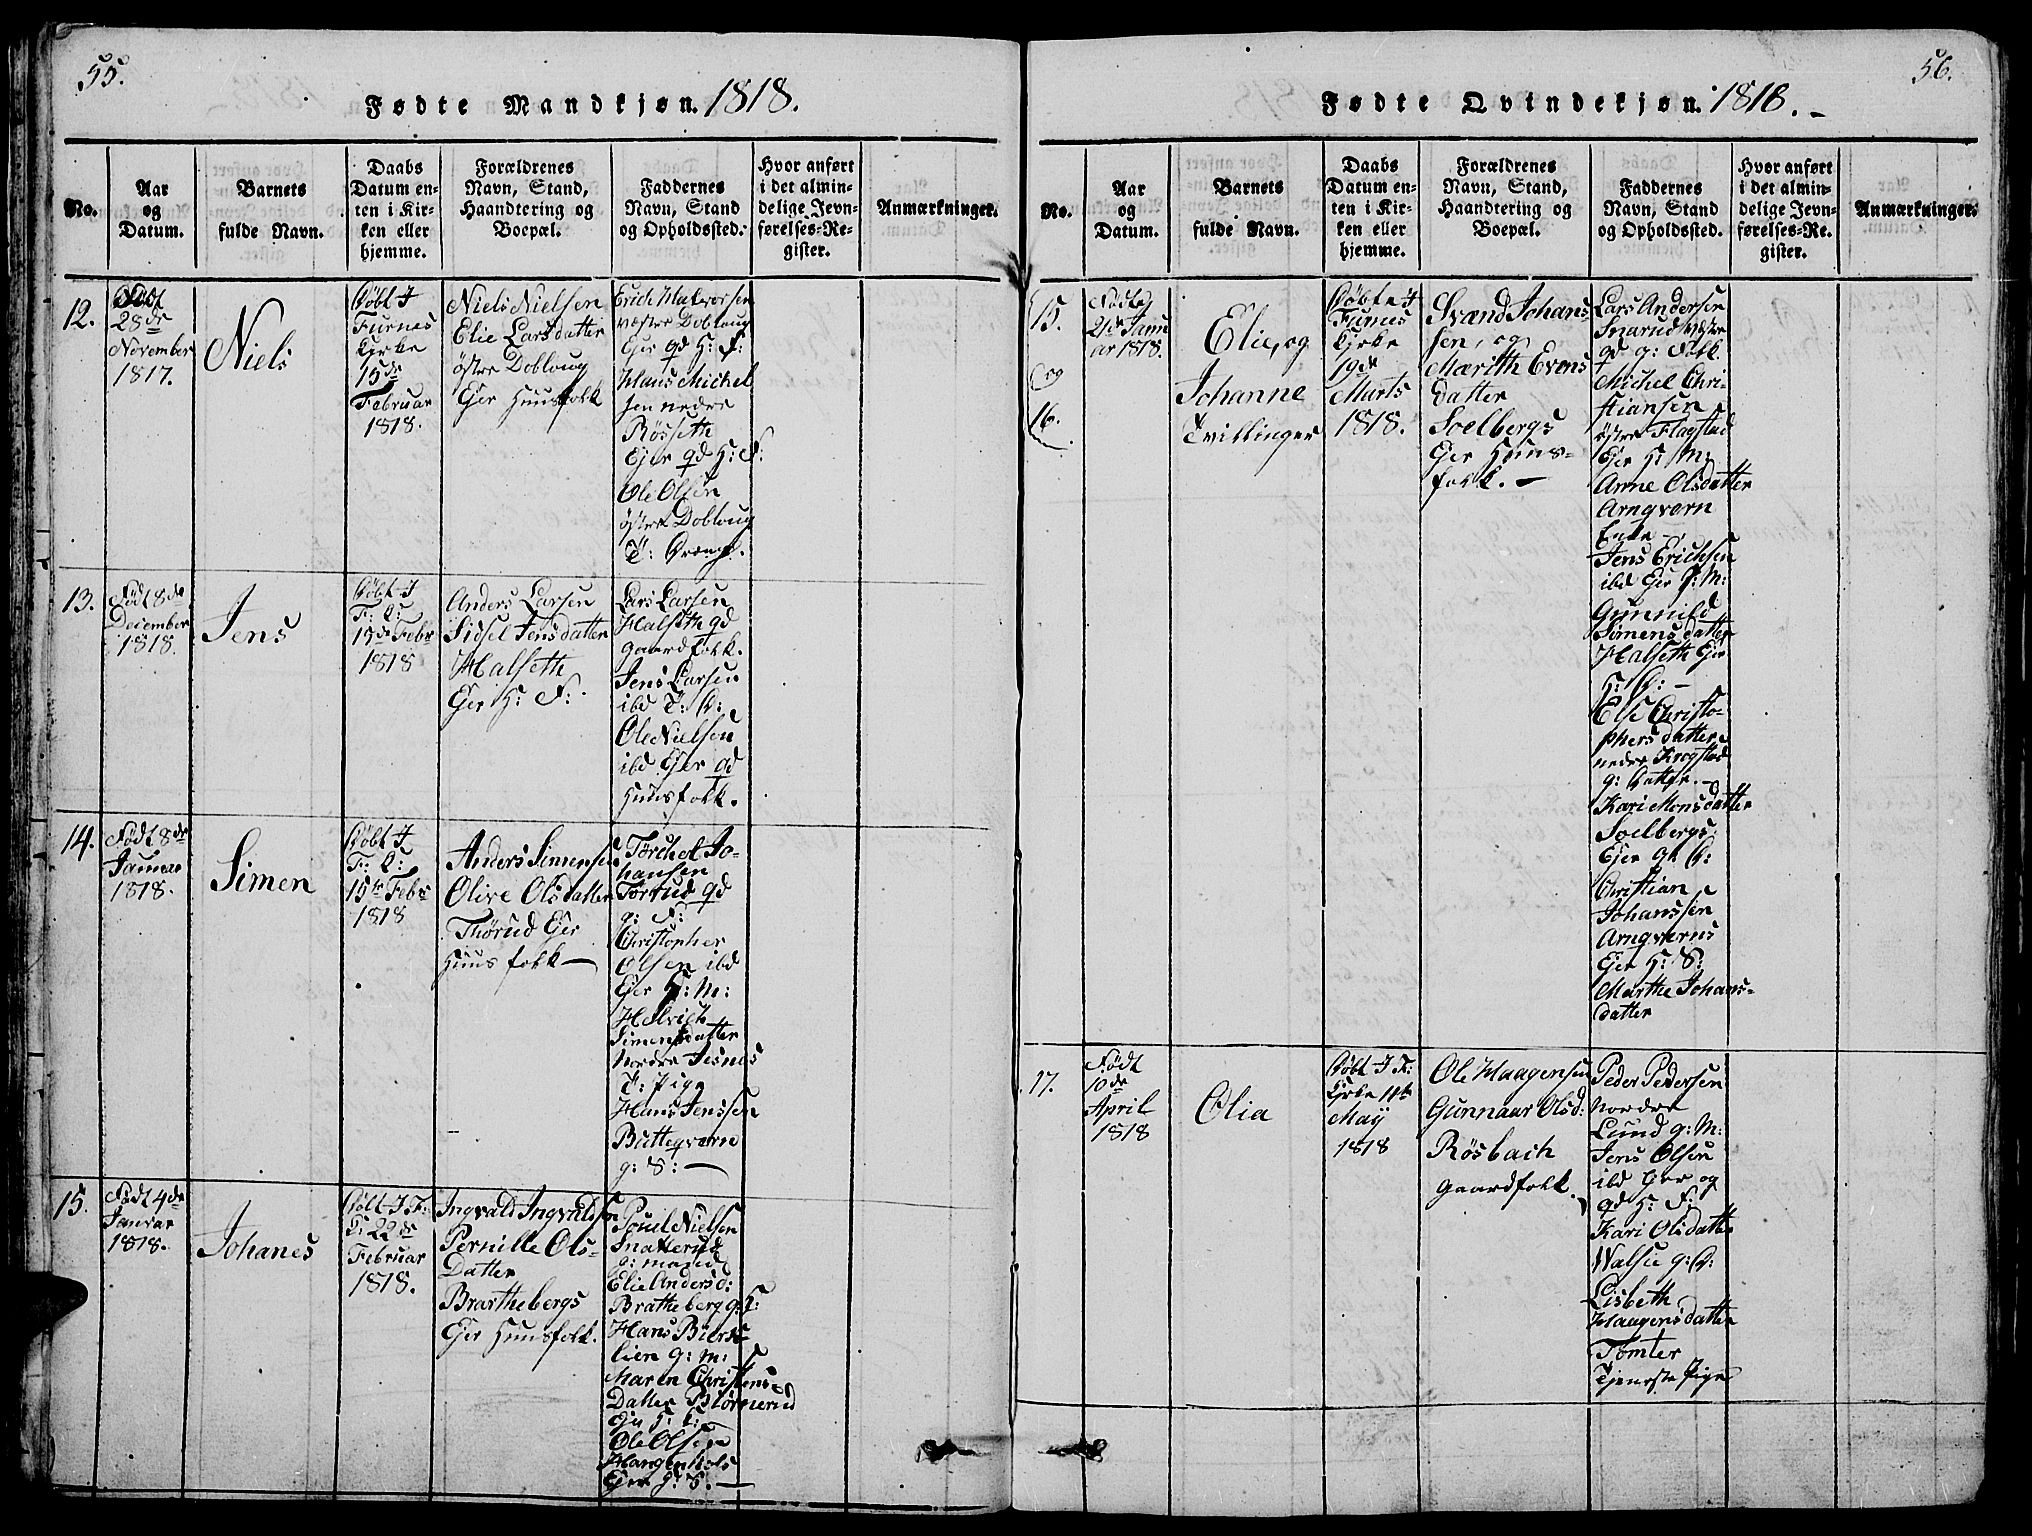 55.
Fødte Mandkjøn. 1818.
No.
Aar
og
Datum.
Barnets
fulde Navn.
Daabs
Datum en-
ten i Kir-
ken eller
hjemme.
Forældrenes
Navn, Stand,
Haandtering og
Boepæl.
Faddernes
Navn, Stand
og Opholdssted.
Hvor anført
i det almin-
delige Jevn-
førelses-Re-
gister.
Anmærkninger.
12.
Født
28de
November
1817.
Niels
Døbt I
Furnes
Kirke
15de
Februar
1818.
Niels Nielsen
Elie Larsdatter
östre Dobloug
Eier Huusfolk
Erich Halvorsen
væstre Dobloug
Eier gd H: F:
Hans Michel
sen nedre
Rösseth
Ejer gd H: F:
Ole Olsen
östre Dobloug
T: Dreng.
13.
Født 8de
December
1818.
Jens
Døbt I
F: K:
15de Febr
1818
Anders Larsen
Sidsel Jensdatter
Halseth
Ejer H: F:
Lars Larsen
Halseth gd
gaardfolk.
Jens Larsen
ibd T: D:
Ole Nielsen
ibd Ejer gd
Huusfolk.
14.
Født 8de
Januar
1818.
Simen
Døbt I
F: K:
15de Febr
1818
Anders Simensen
Olive Olsdatter
Thörud Ejer
Huusfolk —
Torchel Jo-
hansen
Torrud gd
g: F:
Christopher
Olsen ibd
Ejer H: M:
Helvich
Simensdatter
Nordre Jesnes
T: Pige
Hans Jenssen
Butteqvern
g: S: —
15.
Født 4de
Januar
1818.
Johanes
Døbt I F:
K: 22de
Februar
1818.
Ingvald Ingvaldsen
Pernille Ols-
Datter
Brarthebergs
Ejer Huusfolk.
Poul Nielsen
Snatterud
g: mand
Elie Andersd:
Bratheberg g: K:
Hans Bierke
lien g: m:
Maren Christens
Datter Biörnerud
H: K:
Ole Olsen
Ejer g: S: —
56.
Fødte Qvindekjøn. 1818. -
No.
Aar
og
Datum.
Barnets
fulde Navn.
Daabs
Datum en-
ten i Kir-
ken eller
hjemme.
Forældrenes
Navn, Stand,
Haandtering og
Boepæl.
Faddernes
Navn, Stand
og Opholdssted.
Hvor anført
i det almin-
delige Jevn-
førelses-Re-
gister.
Anmærkninger.
15.
og
16.
Fødte
21de Janu
ar 1818.
Elie, og
Johanne
Tvillinger
Døbte I
Furnes
Kirke
19de
Marts
1818.
Svend Johans
sen, og
Marith Evens
datter
Soelbergs
Ejer Huus-
folk. —
Lars Andersen
Snarud væstre
gd g: Folk
Michel Chri-
stiansen
östre Flagstad
Ejer H: M:
Anne Olsdatter
Arnqvern
Enke —
Jens Erichsen
ibd Ejer H: M:
Gunnild
Simensdatter
Halseth Ejer
H: D: —
Else Christo-
phersdatter
nedre Krogstad
g: Datter. —
Kari Monsdatter
Soelbergs
Ejer gd D:
Christian
Johanssen
Arnqverns
Ejer H: S:
Marthe Johans-
datter
17.
Født
10de
April
1818
Olia
Døbt I F:
Kirke 11te
May
1818
Ole Haagensen
Gunnaar Olsd:
Rösbach
gaardfolk.
Peder Pedersen
Nordre
Lund g: M:
Jens Olsen
ibd Ejer og
gd H: F:
Kari Olsdatter
Valsie g: D:
Lisbeth
Haagensdatter
Tomter
Tjeneste Pige